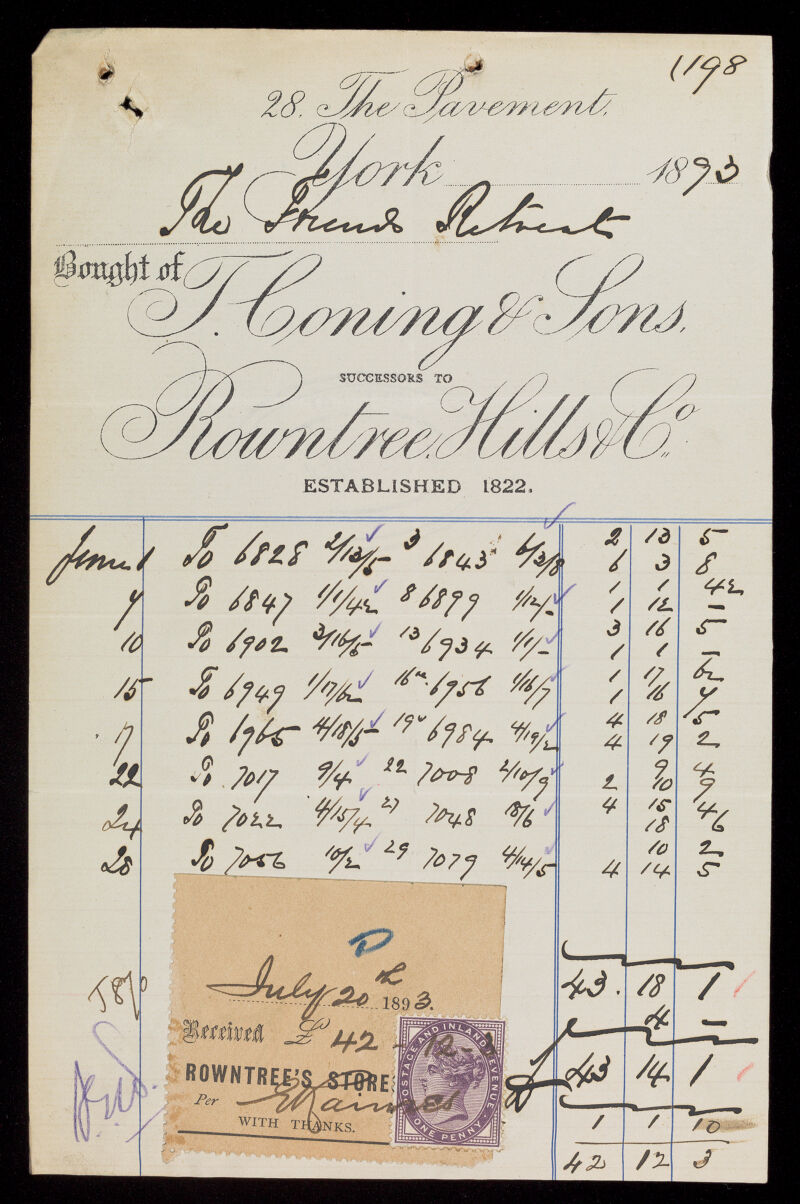 1198
28. The Pavement.
York 1893
The Friends Retreat
Bought of
T. Coning & Sons.
SUCCESSORS TO
Rowntree, Hills & Co.
ESTABLISHED 1822.
June 1 To 6828 2/13/5 3 6843 6/3/8 2 13 5
6 3 8
7 To 6847 1/1/4½ 8 6899 1/12/- 1 1 4½
1 12 -
10 To 6902 3/16/5 13 6934 1/1/- 3 16 5
1 1 -
15 To 6949 1/17/6½ 16 6956 1/16/7 1 17 6½
1 16 7
17 To 6965 4/18/5 19 6984 4/19/2 4 18 5
4 19 2
22 To 7017 9/4 22 7008 2/10/9 9 4
2 10 9
24 To 7022 4/15/4 27 7048 18/6 4 15 4
18 6
28 To 7056 10/2 29 7079 4/14/5 10 2
4 14 5
43 . 18 1
4 -
43 14 1
1 1 10
42 12 3
July 20th 1893.
Received £ 42 - 12 -
ROWNTREE'S STORE
Per
WITH THANKS.
POSTAGE AND INLAND REVENUE
ONE PENNY